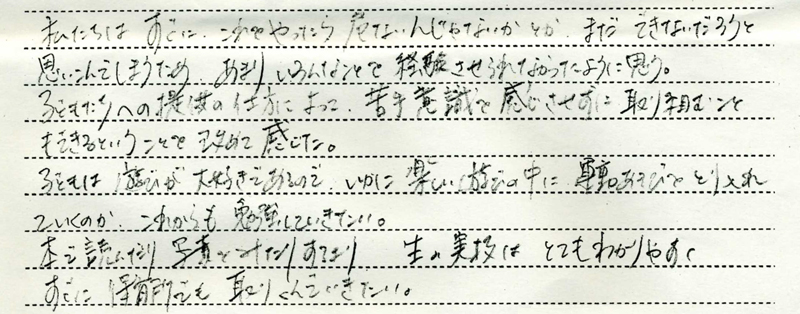 私たちは すぐに、これをやったら 危ないんじゃないかとか、まだ できないだろうと
思いこんでしまうため、あまり いろんなことを 経験させられなかったように思う。
子どもたちへの提供の仕方によって、苦手意識を感じさせずに 取り組むこと
もできるということを 改めて 感じた。
子どもは 遊びが 大好きであるので、いかに 楽しい遊びの中に 運動あそびを とり入れ
ていくのか、これからも 勉強していきたい。
本を読んだり 写真をみたりするより 生の実技は とてもわかりやすく
すぐに 保育所でも 取りくんでいきたい。